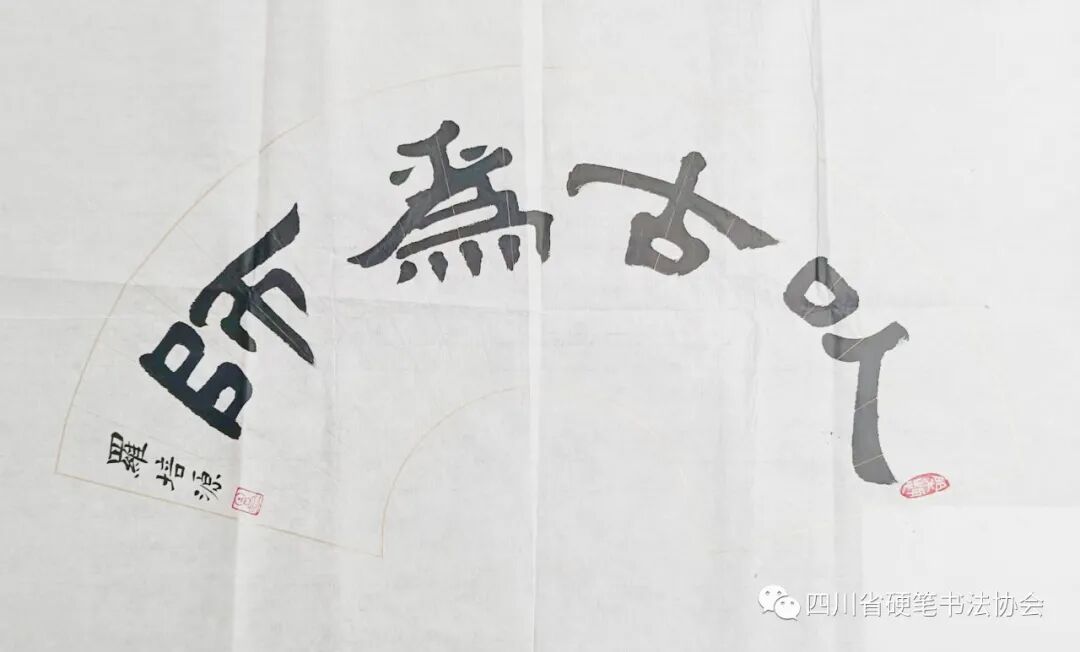 以古為師
羅培源
四川省硬笔书法协会